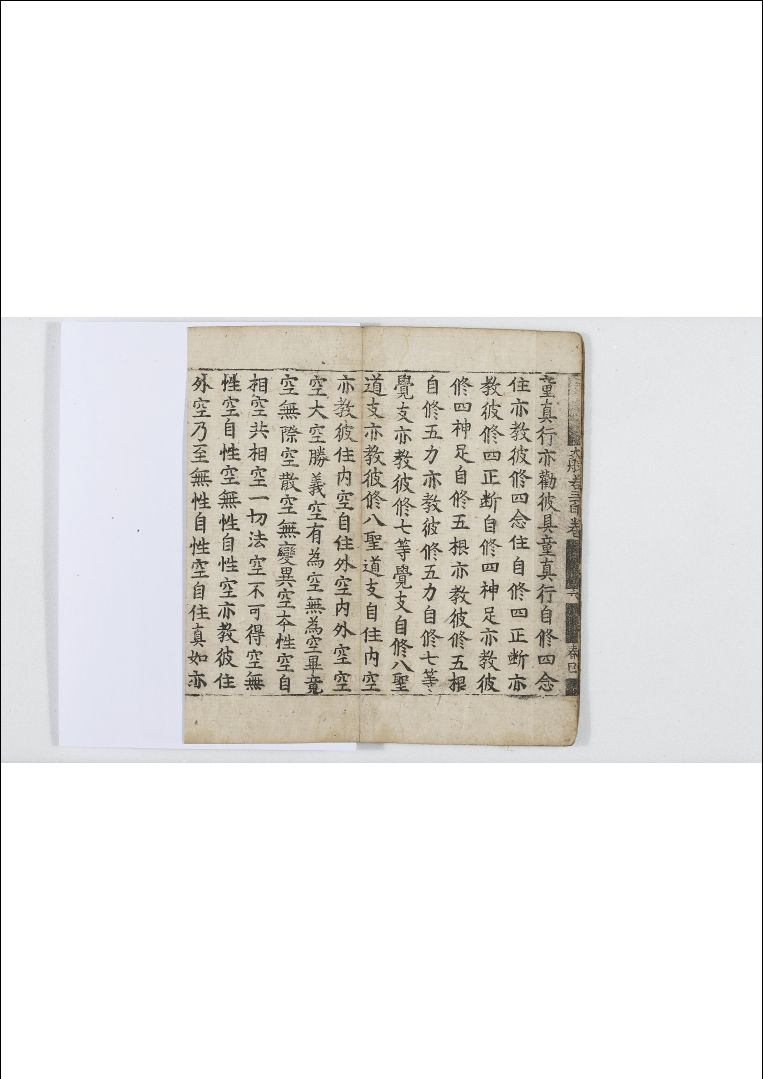 童真行亦勸彼具童真行自修四念
住亦教彼修四念住自修四正断亦
教彼修四正断自修四神足亦教彼
修四神足自修五根亦教彼修五根
自修五力亦教彼修五力自修七等
覺支亦教彼修七等覺支自修八聖
道支亦教彼修八聖道支自住內空
亦教彼住內空自住外空內外空空
空大空勝義空有為空無為空畢竟
空無際空散空無變異空本性空自
相空共相空一切法空不可得空無
性空自性空無性自性空亦教彼住
外空乃至無性自性空自住真如亦